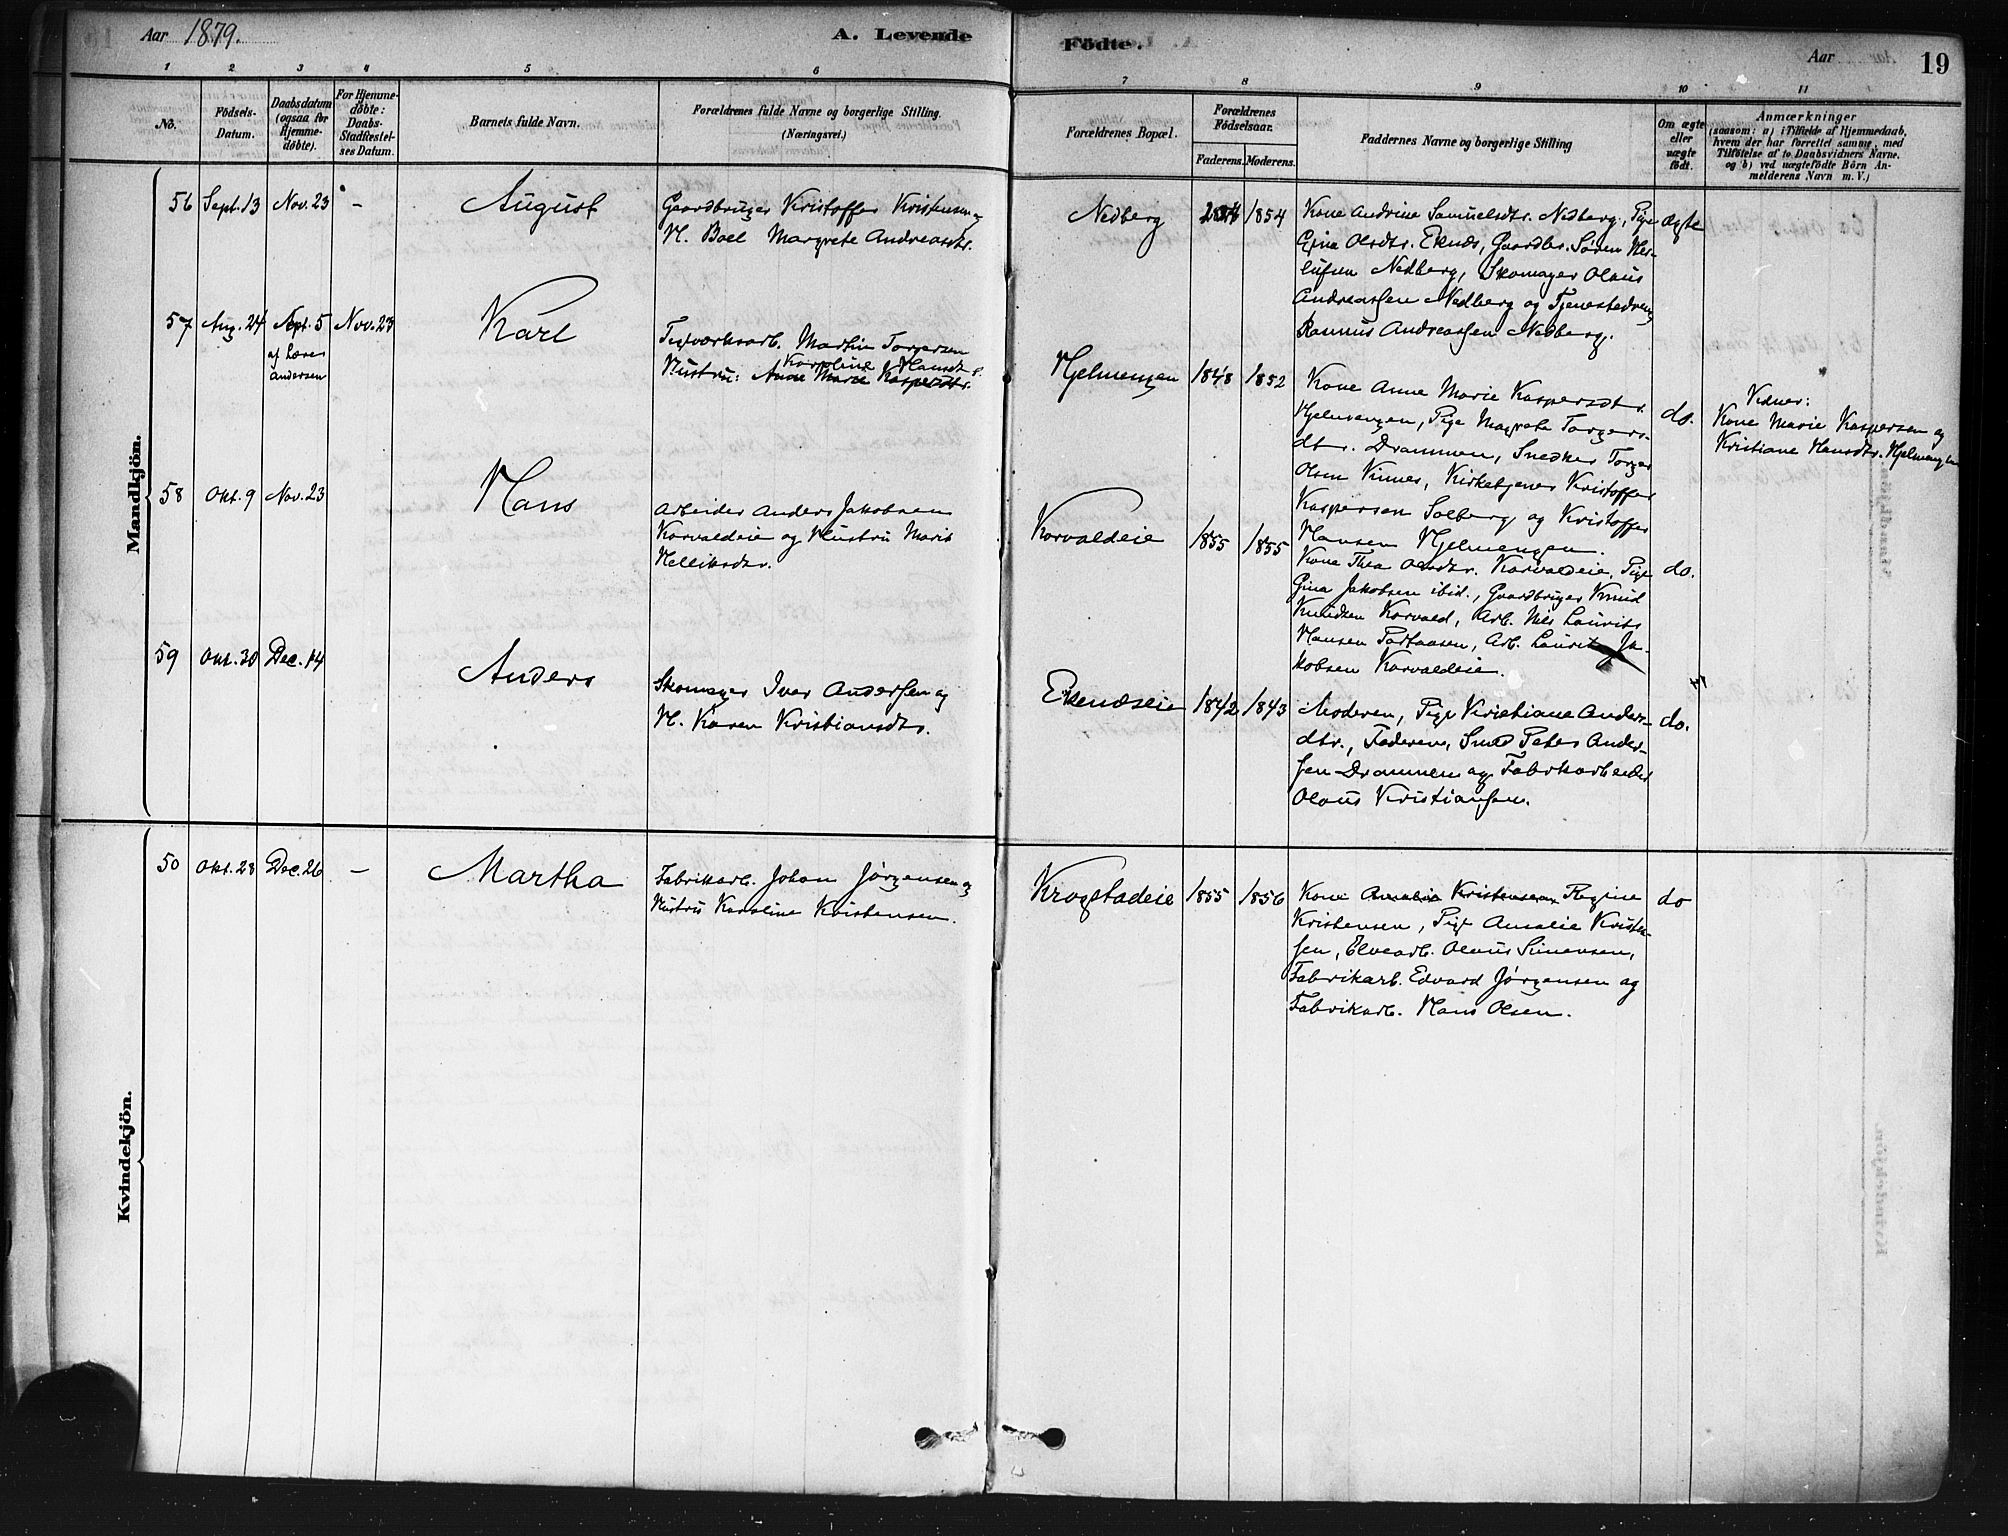 Aar 1879.
A. Levende
Födte.
Aar
19
1 2 3 4 5 6 7 8 9 10 11
No.
Födsels-
Datum.
Daabsdatum
(ogsaa for
Hjemme-
døbte).
For Hjemme-
døbte:
Daabs-
Stadfæstel-
ses Datum.
Barnets fulde Navn.
Forældrenes fulde Navne og borgerlige Stilling.
(Næringsvei.)
Forældrenes Bopæl.
Forældrenes
Födselsaar.
Faderens. Moderens.
Faddernes Navne og borgerlige Stilling
Om ægte
eller
uægte
födt.
Anmærkninger
(saasom: a) i Tilfælde af Hjemmedaab,
hvem der har forrettet samme, med
Tilföielse af to Daabsvidners Navne,
og b) ved uægtefödte Börn An-
melderens Navn m. V.)
Mandkjön.
56 Sept. 13 Nov. 23 — August
Gaardbruger Kristoffer Kristensen og
H. Boel Margrete Andreasdtr.
Nedberg 1854
Kone Andrine Samuelsdtr. Nedberg, Pige
Gina Olsdtr. Eknes, Gaardbr. Søren
Nedberg, Skomager Olaus
Andreassen Nedberg og Tjenestedreng
Rasmus Andreassen Nedberg.
ægte
57 Aug. 24 Sept. 5 Nov. 23 Karl
af Lærer
Andersen
Teglværksarb. Martin Torgersen
Karoline Hansdtr.
Hustru: Anne Marie Kaspersdtr.
Hjelmengen 1848 1852
Kone Anne Marie Kaspersdtr.
Hjelmengen, Pige Magrete Torgers-
dtr. Drammen, Snedker Torger
Olsen Vinnes, Kirketjener Kristoffer
Kaspersen Solberg og Kristoffer
Hansen Hjelmengen.
do.
Vidner:
Kone Marie Kaspersen og
Kristiane Hansdtr. Hjelmengen
58 Okt. 9 Nov. 23 Hans
Arbeider Anders Jakobsen
Korvaldeie og Hustru Maria
Helliksdtr.
Korvaldeie 1855 1855
Kone Thea Olsdtr. Korvaldeie, Pige
Gina Jakobsen ibid., Gaardbruger Knud
Knudsen Korvald, Arb. Nils Laurits
Hansen Portaasen, Arb. Laurits Ja-
kobsen Korvaldeie.
do.
59 Okt. 30 Dec. 14 Anders
Skomager Iver Anderssen og
H. Karen Kristiansdtr.
Eknæseie 1842 1843
Moderen, Pige Kristiane Anders-
dtr., Faderen, Smed Peter Ander-
sen Drammen og Fabrikarbeider
Olaus Kristiansen.
do.
Kvindekjön.
50 Okt. 23 Dec. 26 — Martha
Fabrikarb. Johan Jørgensen og
Hustru Karoline Kristensen.
Krogstadeie 1855 1856
Kone Amalie Kristensen Regine
Kristensen, Pige Amalie Kristen-
sen, Elvearb. Olaus Simensen,
Fabrikarb. Edvard Jørgensen og
Fabrikarb. Hans Olsen.
do